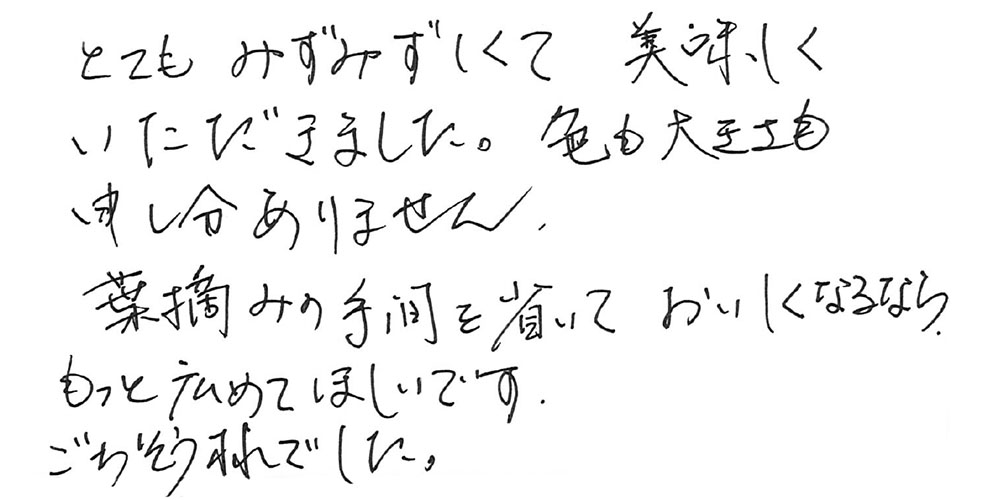 とてもみずみずしくて 美味しく
いただきました。色も大きさも
申し分ありません.
葉摘みの手間を省いて おいしくなるなら.
もっと広めてほしいです.
ごちそう様でした。